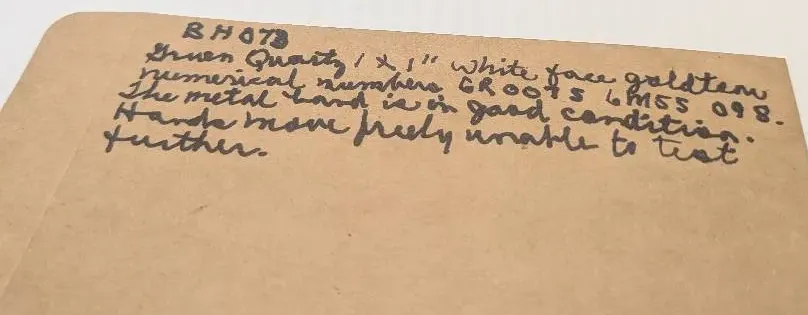 BH073
Gruen Quartz 1 x 1" white face goldtem
numerical numbers GR0095 6M55 098.
The metal band is in good condition.
Hands move freely unable to test
further.